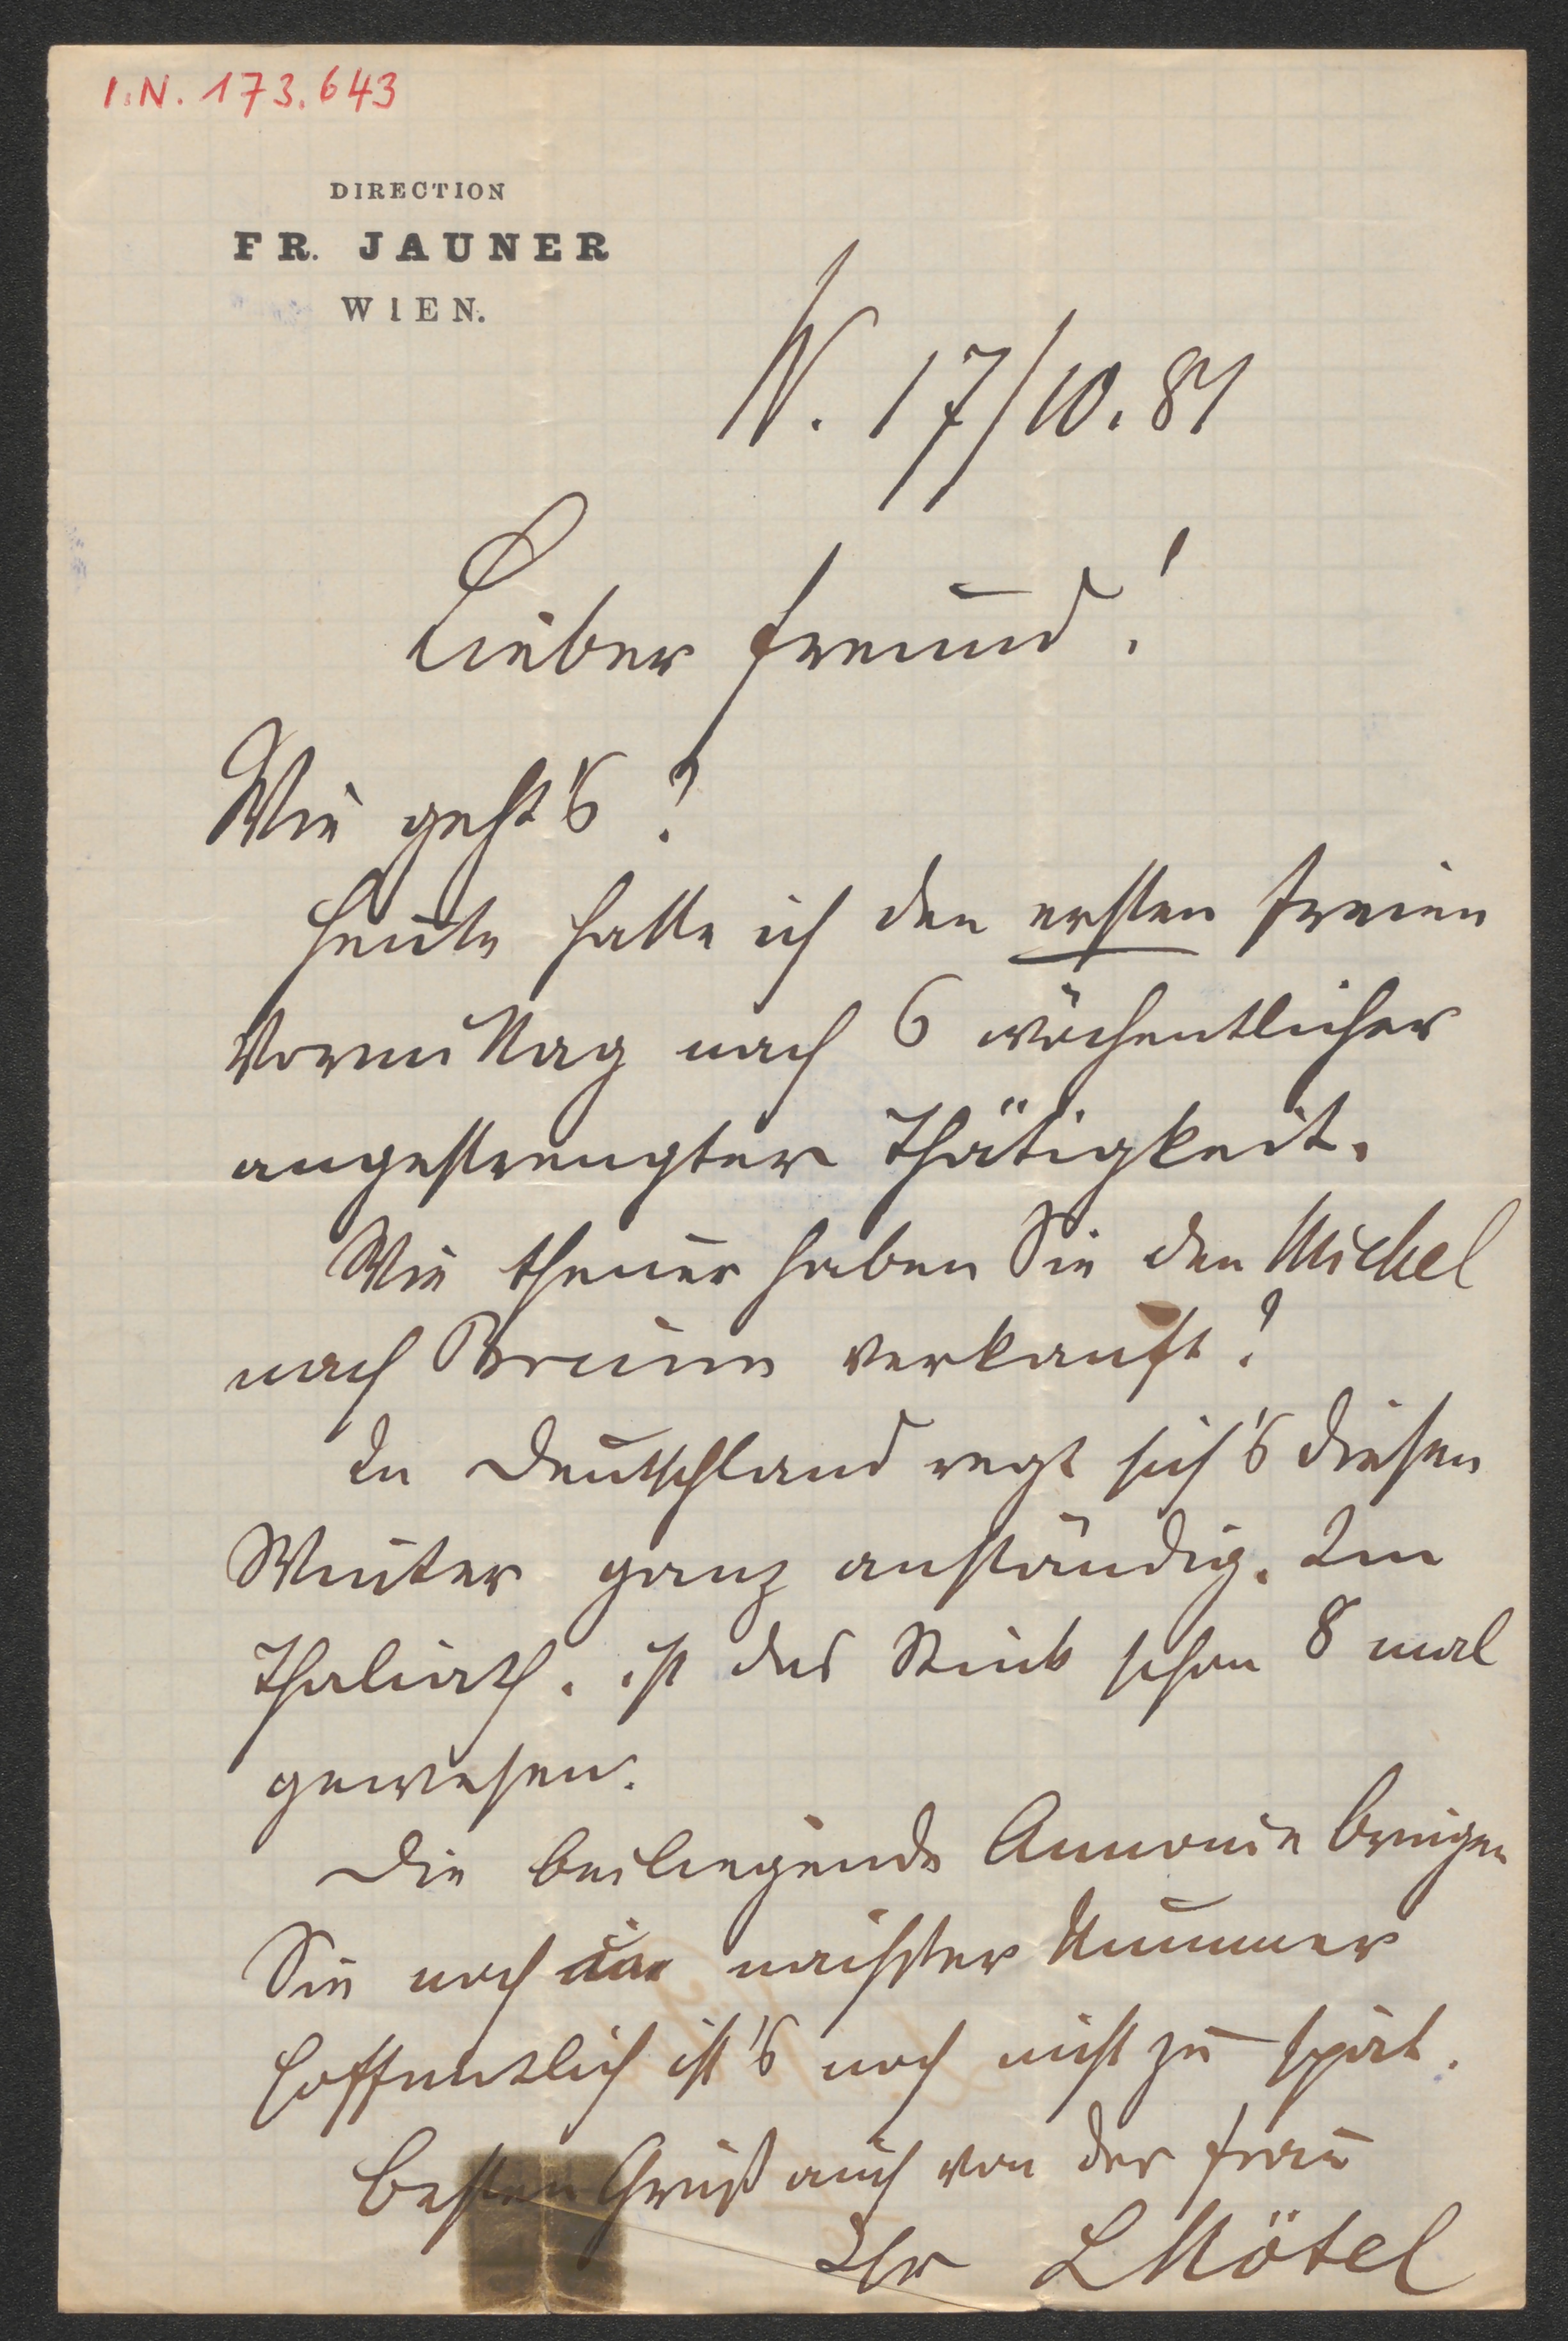 I.N. 173.643
DIRECTION
FR. JAUNER
WIEN.
W. 17/10. 81
Lieber Freund!
Wie geht's?
Heute hatte ich den ersten freien
Vormittag nach 6 wöchentlicher
angestrengter Thätigkeit.
Wie theuer haben Sie den Michel
nach Brünn verkauft?
In Deutschland regt sich's diesen
Winter ganz anständig. Im
Thaliath. ist das Stück schon 8 mal
gewesen.
Die beiliegende Annonce bringen
Sie noch in nächster Nummer
hoffentlich ist's noch nicht zu spät.
Besten Gruß auch von der Frau
Ihr LMötel